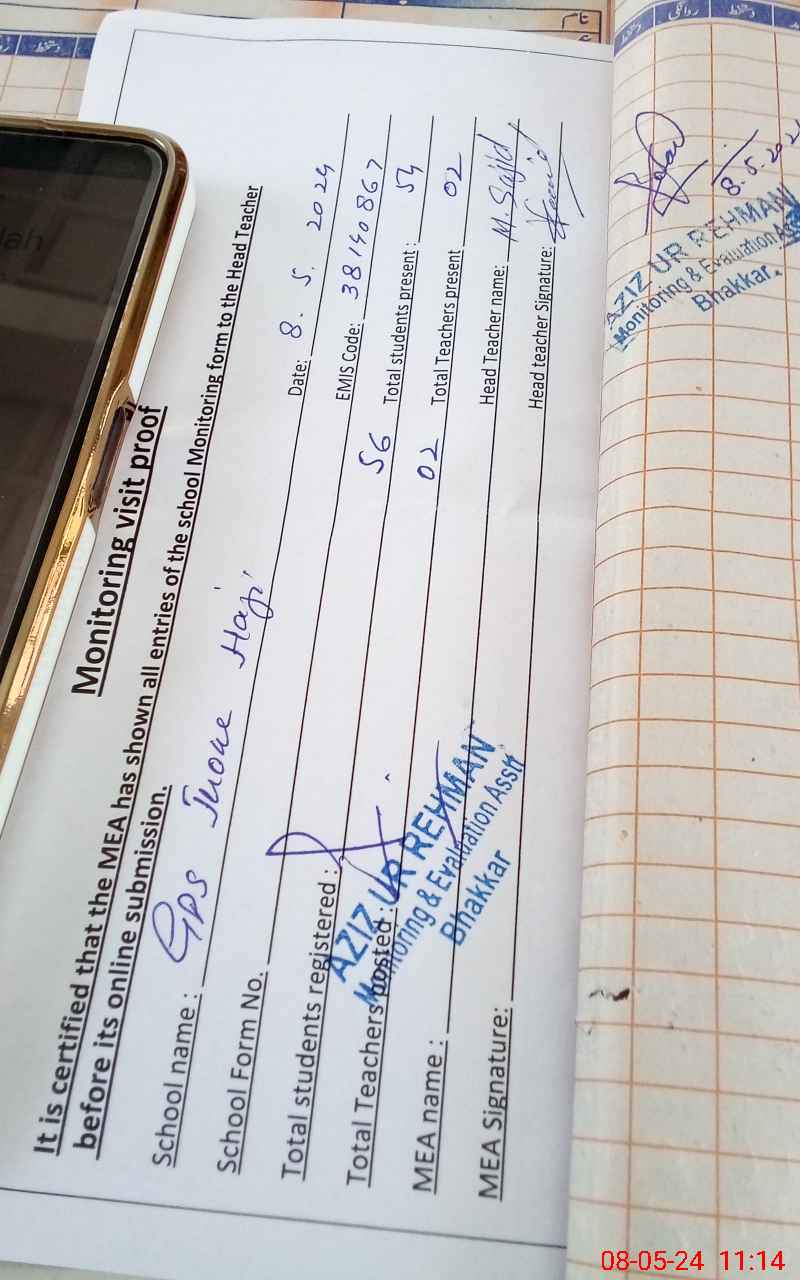 Monitoring visit proof
It is certified that the MEA has shown all entries of the school Monitoring form to the Head Teacher
before its online submission.
School name : GPS Jhoke Haji Date: 8. 5. 2024
School Form No. EMIS Code: 38140867
Total students registered : 56 Total students present : 54
Total Teachers posted : 02 Total Teachers present 02
MEA name : Head Teacher name: M. Sajid
MEA Signature: Head teacher Signature:
AZIZ UR REHMAN
Monitoring & Evaluation Asstt
Bhakkar
دستخط روانگی دستخط
8.5.2024
AZIZ UR REHMAN
Monitoring & Evaluation Ass
Bhakkar.
lah
08-05-24 11:14